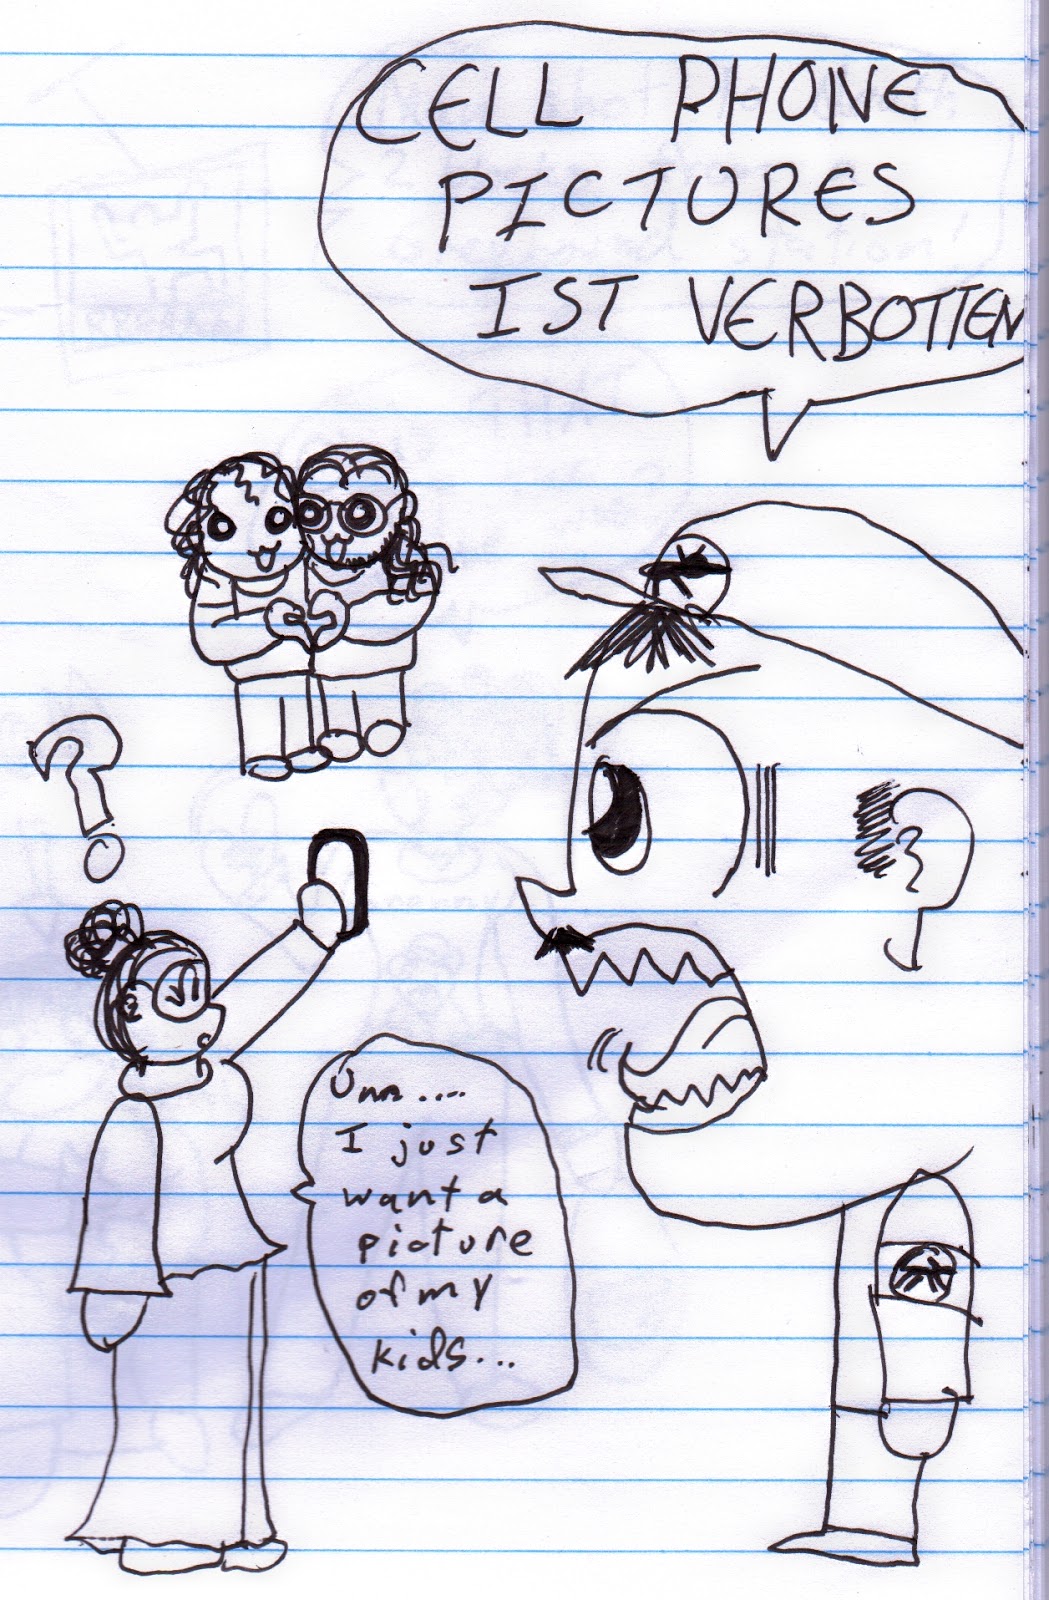 CELL PHONE
PICTURES
IST VERBOTTEN
?
Umm....
I just
want a
picture
of my
kids...